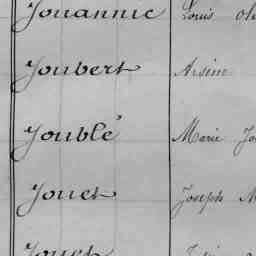 Jouannic Louis
Joubert Arsène
Joublé Marie
Jouet Joseph
Jouet